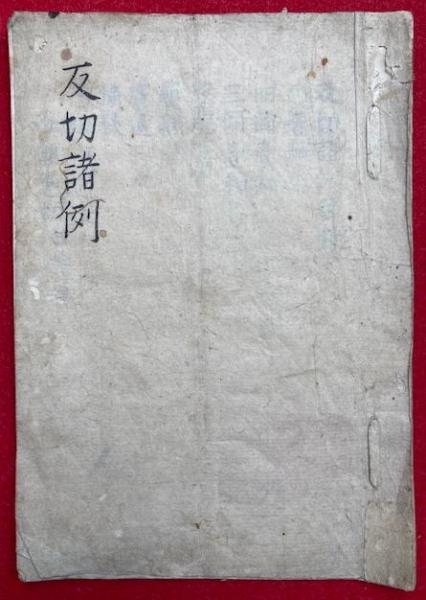 反切諸例